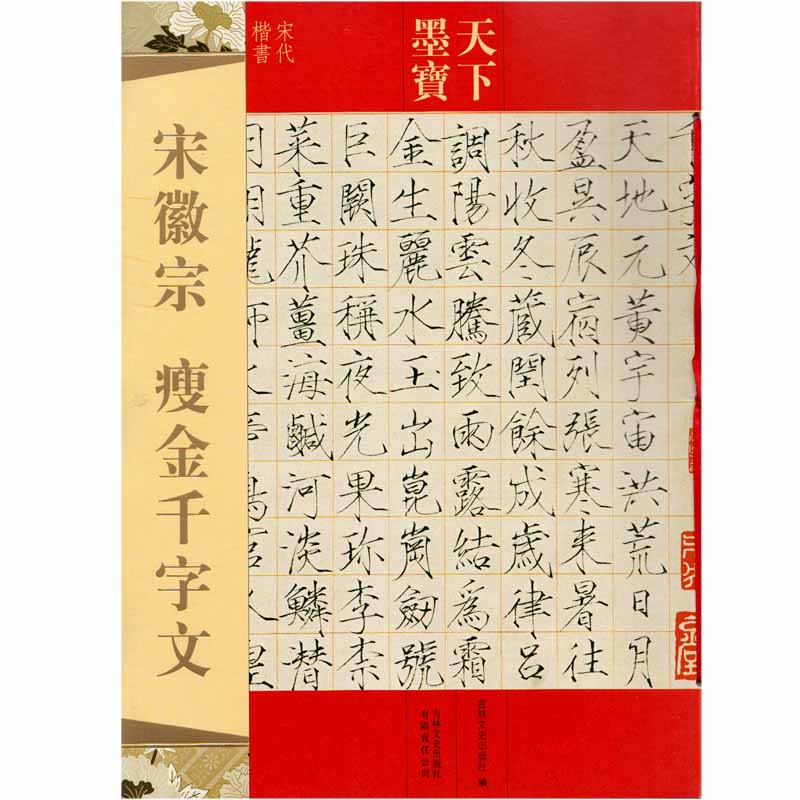 天下
墨寶
宋代
楷書
宋徽宗 瘦金千字文
千字文
天地元黃宇宙洪荒日月
盈昃辰宿列張寒来暑往
秋收冬蔵閏餘成歲律呂
調陽雲騰致雨露結爲霜
金生麗水玉出崑崗劒號
巨闕珠稱夜光果珍李柰
菜重芥薑海鹹河淡鱗潛
吉林文史出版社 編
吉林文史出版社
有限責任公司